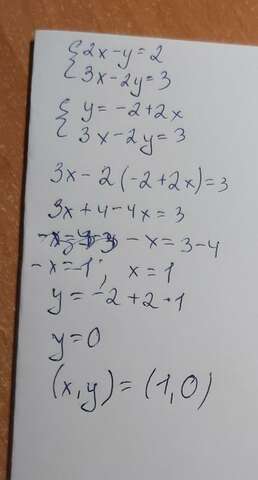 {2x-y=2
{3x-2y=3
{y=-2+2x
{3x-2y=3
3x-2(-2+2x)=3
3x+4-4x=3
-x=3-4
-x=-1; x=1
y=-2+2·1
y=0
(x,y)=(1,0)